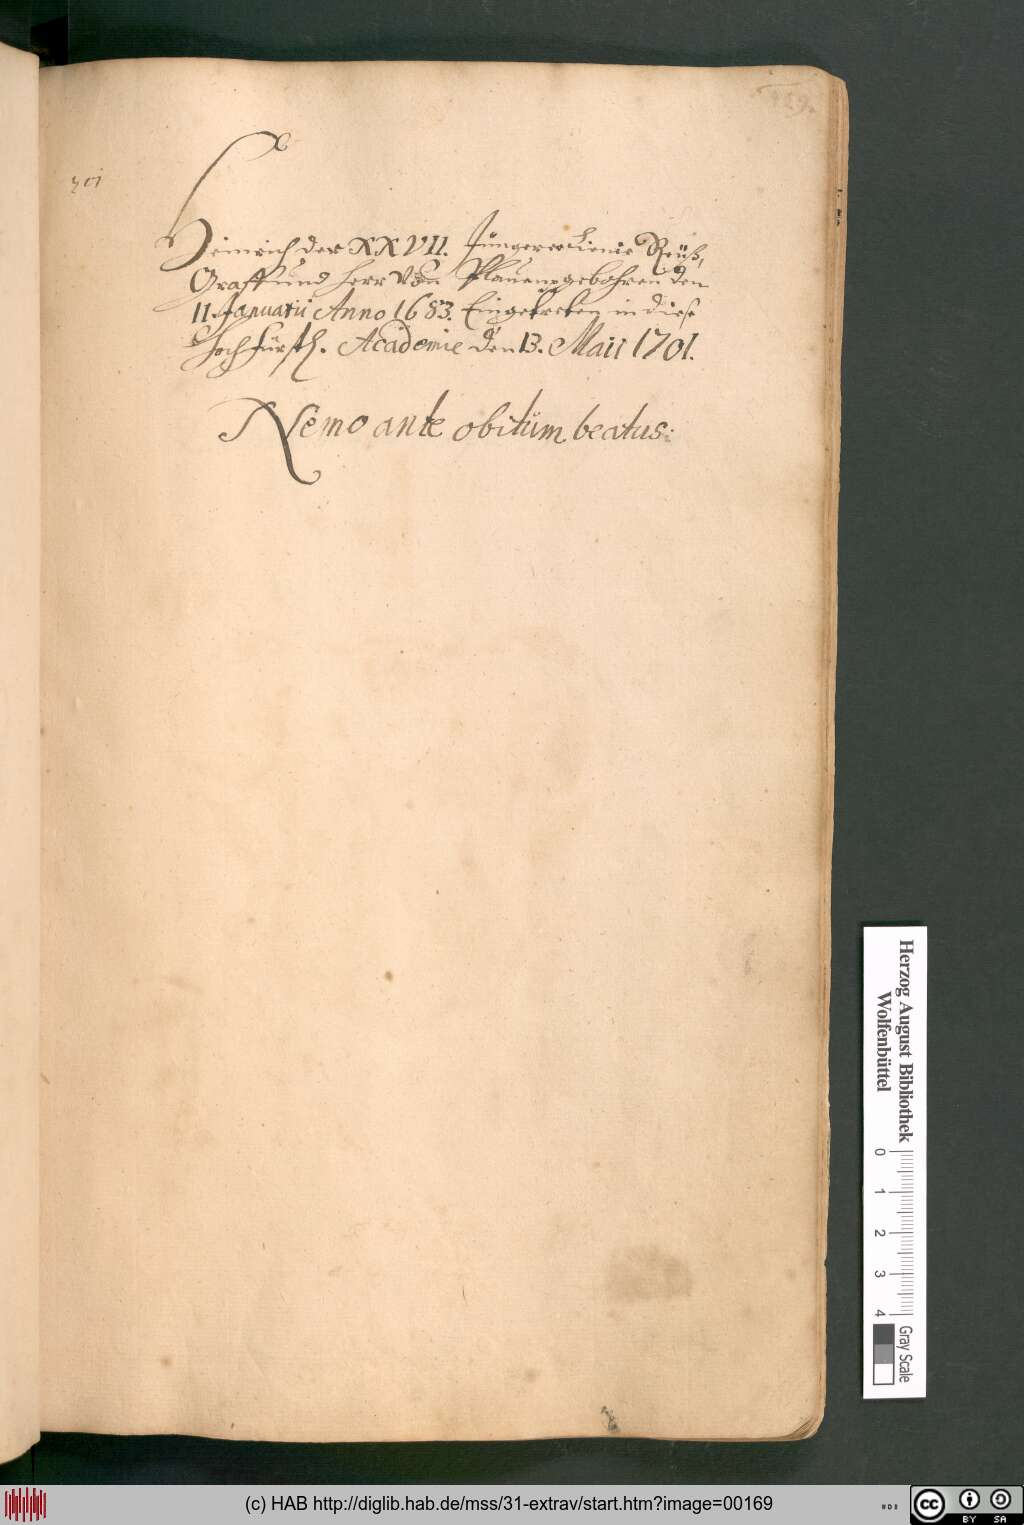 169.
701
Heinrich der XXVII. Jüngerer Linie Reüß,
Graff und Herr Von Plauen gebohren den
11. Januarii Anno 1683. Eingetreten in diese
Hochfürstl. Academie den 13. Maii 1701.
Nemo ante obitum beatus.
Herzog August Bibliothek
Wolfenbüttel
0 1 2 3 4
Gray Scale
(c) HAB http://diglib.hab.de/mss/31-extrav/start.htm?image=00169
cc BY SA